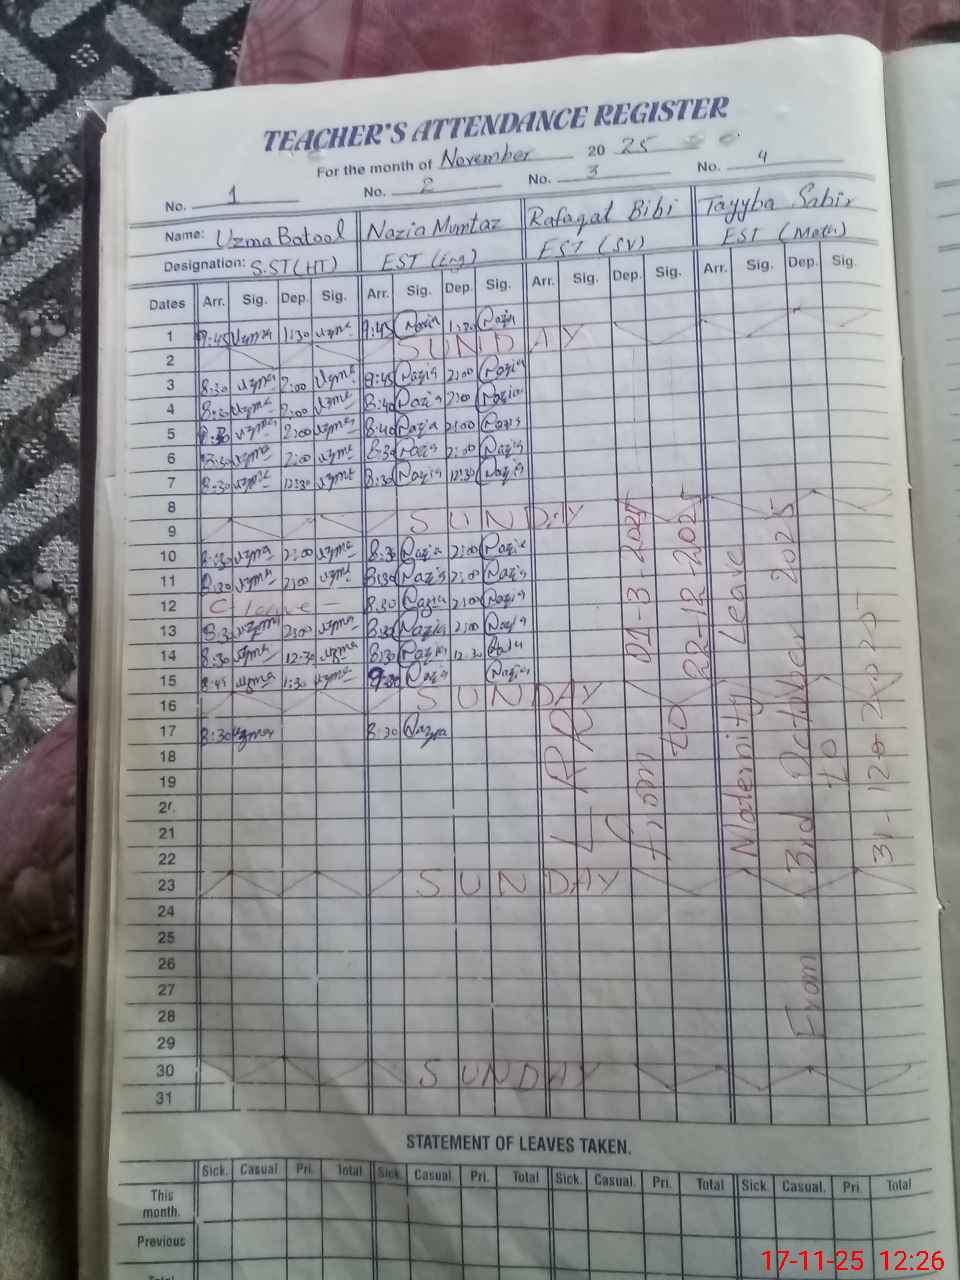 TEACHER'S ATTENDANCE REGISTER
For the month of November 2025
No. 1 No. 2 No. 3 No. 4
Name: Uzma Batool Nazia Mumtaz Rafaqat Bibi Tayyba Sabir
Designation: S.ST(HT) EST (Eng) EST (SV) EST (Math)
Dates Arr. Sig. Dep. Sig. Arr. Sig. Dep. Sig. Arr. Sig. Dep. Sig. Arr. Sig. Dep. Sig.
1 Uzma 1:30 Uzma Nazia Nazia
2 SUNDAY
3 8:30 Uzma 2:00 Uzma 8:45 Nazia 2:00 Nazia
4 8:30 Uzma 2:00 Uzma 8:40 Nazia 2:00 Nazia
5 8:30 Uzma 2:00 Uzma 8:40 Nazia 2:00 Nazia
6 8:30 Uzma 2:00 Uzma 8:30 Nazia 2:00 Nazia
7 8:30 Uzma 12:30 Uzma 8:30 Nazia 12:30 Nazia
8
9 SUNDAY
10 8:30 Uzma 2:00 Uzma 8:30 Nazia 2:00 Nazia
11 8:30 Uzma 2:00 Uzma 8:30 Nazia 2:00 Nazia
12 C Leave 8:30 Nazia 2:00 Nazia
13 8:30 Uzma 2:00 Uzma 8:30 Nazia 2:00 Nazia
14 8:30 Uzma 12:30 Uzma 8:30 Nazia 12:30
15 8:45 Uzma 1:30 Uzma Nazia Nazia
16 SUNDAY
17 8:30 Uzma 8:30 Nazia
18
19
20
21
22
23 SUNDAY
24
25
26
27
28
29
30 SUNDAY
31
From 01-3-2025
to 22-12-2025
Maternity Leave
From 3rd October 2025
to
STATEMENT OF LEAVES TAKEN.
Sick. Casual Pri. Total Sick. Casual. Pri. Total Sick. Casual. Pri. Total Sick. Casual. Pri. Total
This month.
Previous
Total
17-11-25 12:26